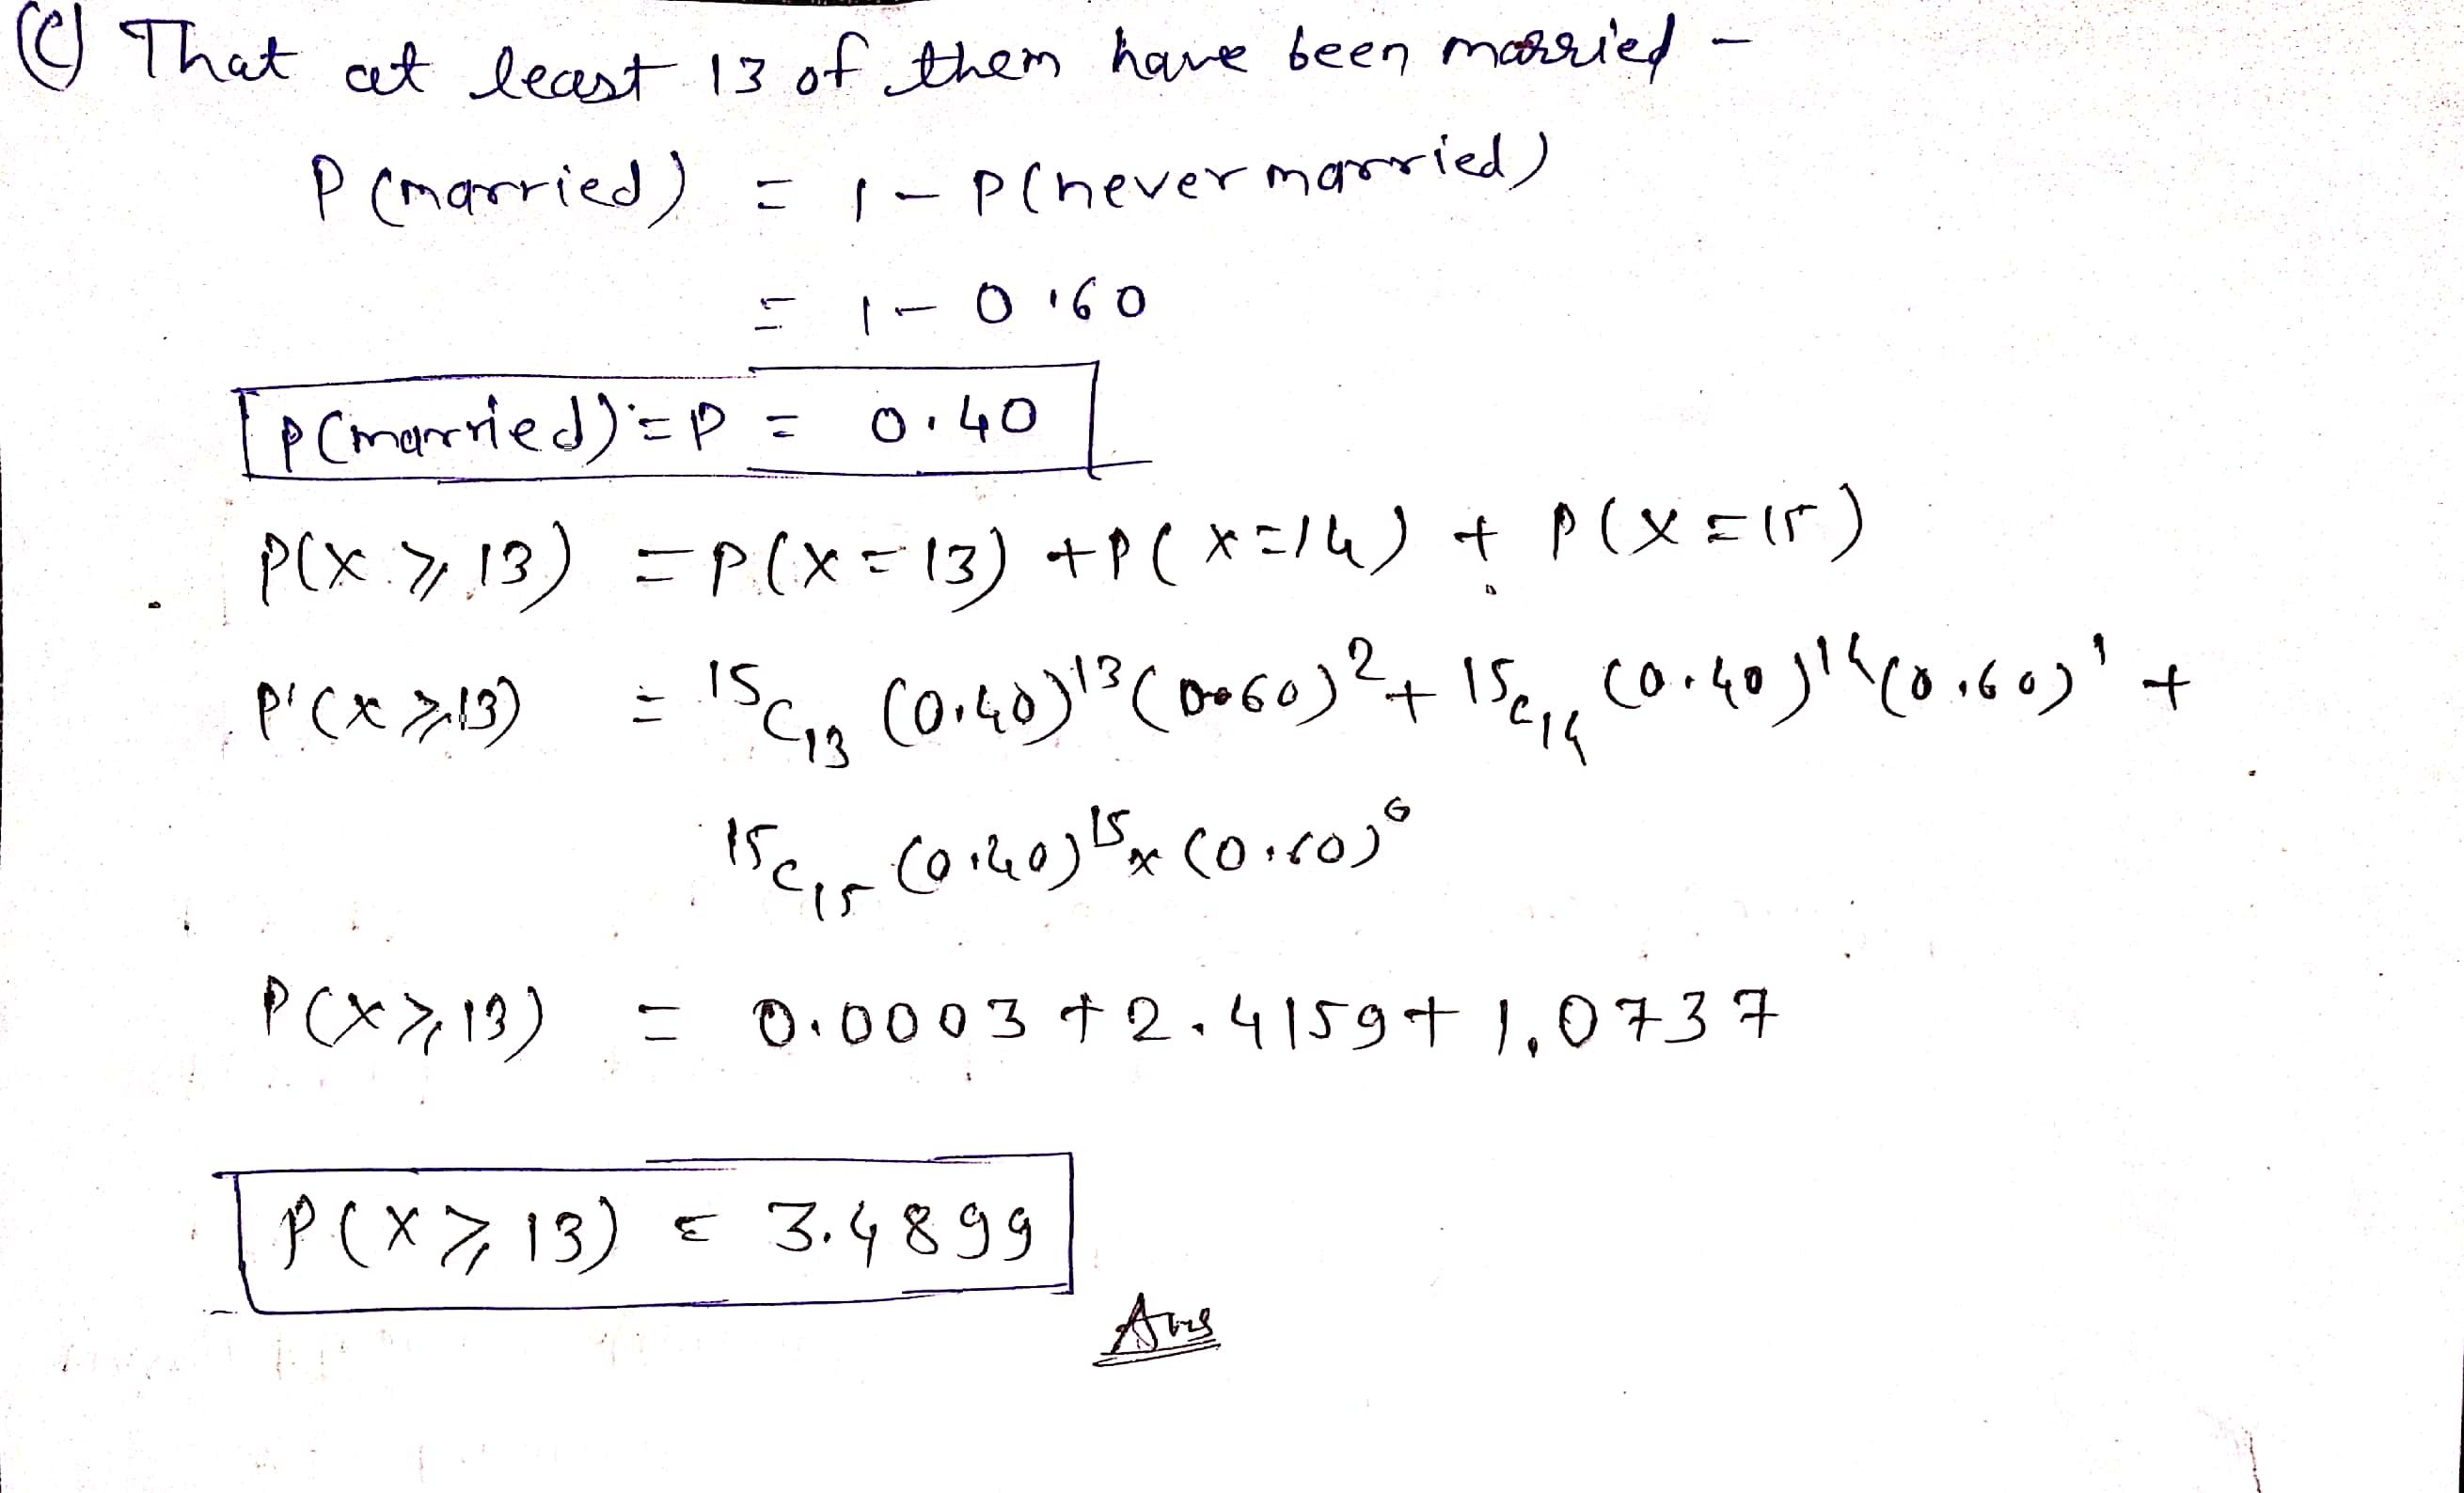 (C) That at least 13 of them have been married -
P (married) = 1 - P(never married)
= 1 - 0.60
P(married) = P = 0.40
P(X ⩾ 13) = P(X = 13) + P(X = 14) + P(X = 15)
P(X ⩾ 13) = ¹⁵C₁₃ (0.40)¹³ (0.60)² + ¹⁵C₁₄ (0.40)¹⁴ (0.60)¹ +
¹⁵C₁₅ (0.40)¹⁵ × (0.60)⁰
P(X ⩾ 13) = 0.0003 + 2.4159 + 1.0737
P(X ⩾ 13) = 3.4899
Ans